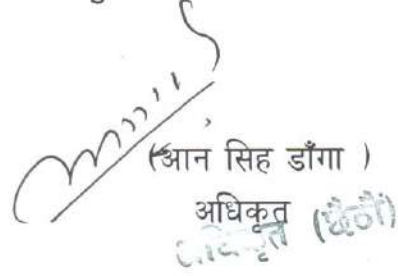 (आन सिह डाँगा )
अधिकृत
अधिकृत (छैठौं)